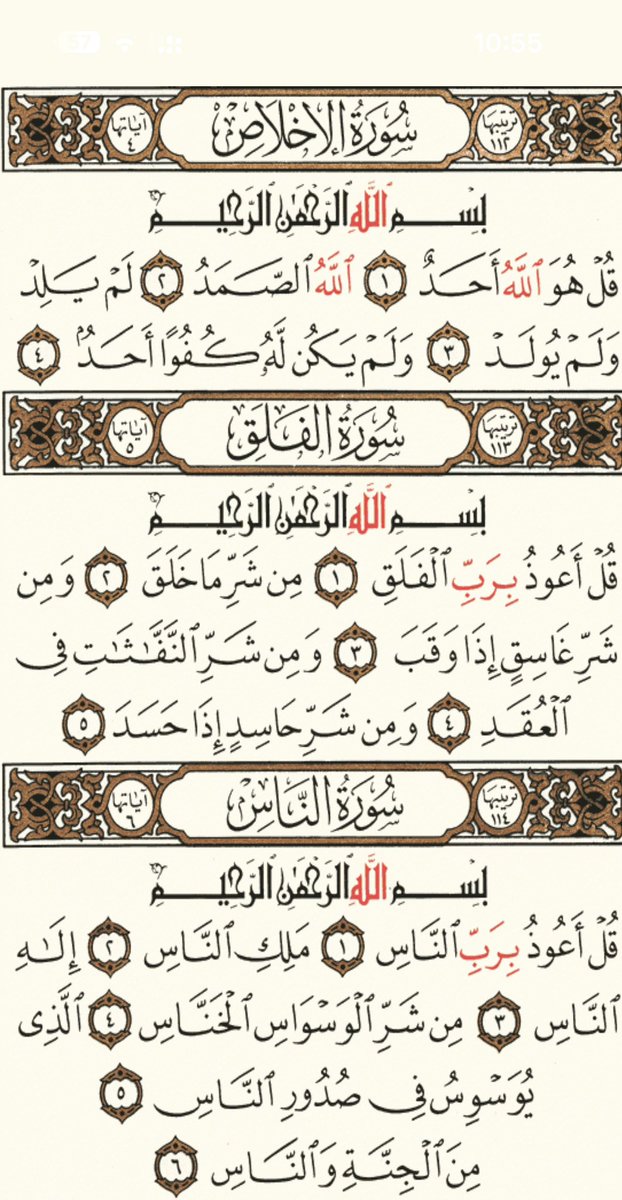 57 10:55
ترتيبها ١١٢ سُورَةُ الإِخْلَاصِ آيَاتُهَا ٤
بِسْمِ ٱللَّهِ ٱلرَّحْمَٰنِ ٱلرَّحِيمِ
قُلْ هُوَ ٱللَّهُ أَحَدٌ ١ ٱللَّهُ ٱلصَّمَدُ ٢ لَمْ يَلِدْ
وَلَمْ يُولَدْ ٣ وَلَمْ يَكُن لَّهُۥ كُفُوًا أَحَدٌۢ ٤
ترتيبها ١١٣ سُورَةُ الفَلَقِ آيَاتُهَا ٥
بِسْمِ ٱللَّهِ ٱلرَّحْمَٰنِ ٱلرَّحِيمِ
قُلْ أَعُوذُ بِرَبِّ ٱلْفَلَقِ ١ مِن شَرِّ مَا خَلَقَ ٢ وَمِن
شَرِّ غَاسِقٍ إِذَا وَقَبَ ٣ وَمِن شَرِّ ٱلنَّفَّٰثَٰتِ فِى
ٱلْعُقَدِ ٤ وَمِن شَرِّ حَاسِدٍ إِذَا حَسَدَ ٥
ترتيبها ١١٤ سُورَةُ النَّاسِ آيَاتُهَا ٦
بِسْمِ ٱللَّهِ ٱلرَّحْمَٰنِ ٱلرَّحِيمِ
قُلْ أَعُوذُ بِرَبِّ ٱلنَّاسِ ١ مَلِكِ ٱلنَّاسِ ٢ إِلَٰهِ
ٱلنَّاسِ ٣ مِن شَرِّ ٱلْوَسْوَاسِ ٱلْخَنَّاسِ ٤ ٱلَّذِى
يُوَسْوِسُ فِى صُدُورِ ٱلنَّاسِ ٥
مِنَ ٱلْجِنَّةِ وَٱلنَّاسِ ٦